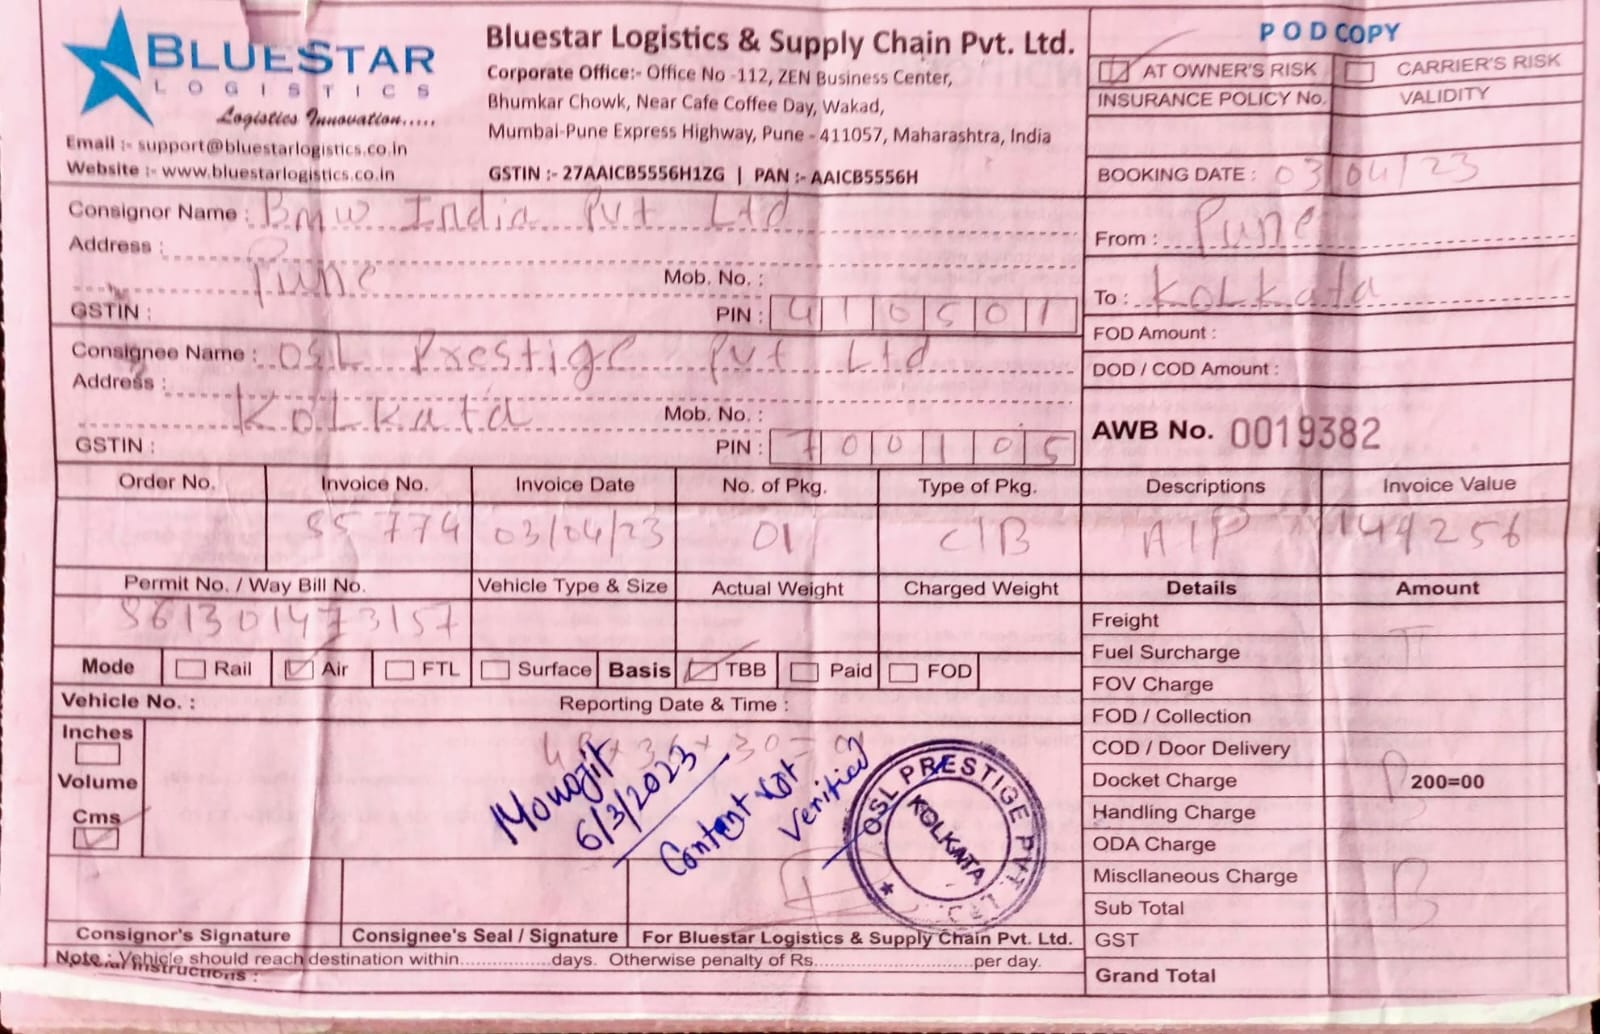 BLUESTAR
LOGISTICS
Logistics Innovation.....
Email :- support@bluestarlogistics.co.in
Website :- www.bluestarlogistics.co.in
Bluestar Logistics & Supply Chain Pvt. Ltd.
Corporate Office:- Office No -112, ZEN Business Center,
Bhumkar Chowk, Near Cafe Coffee Day, Wakad,
Mumbai-Pune Express Highway, Pune - 411057, Maharashtra, India
GSTIN :- 27AAICB5556H1ZG | PAN :- AAICB5556H
POD COPY
AT OWNER'S RISK CARRIER'S RISK
INSURANCE POLICY No. VALIDITY
BOOKING DATE : 03/04/23
From : Pune
To : Kolkata
FOD Amount :
DOD / COD Amount :
AWB No. 0019382
Consignor Name : BMW India Pvt Ltd
Address :
Pune Mob. No. :
GSTIN : PIN : 410501
Consignee Name : OSL Prestige Pvt Ltd
Address :
Kolkata Mob. No. :
GSTIN : PIN : 700105
Order No. Invoice No. Invoice Date No. of Pkg. Type of Pkg. Descriptions Invoice Value
55774 03/04/23 01 C/B A/P 149256
Permit No. / Way Bill No. Vehicle Type & Size Actual Weight Charged Weight Details Amount
561301473157
Mode Rail Air FTL Surface Basis TBB Paid FOD
Vehicle No. : Reporting Date & Time :
Inches
Volume
Cms
48 x 36 x 30 =
Monojit
6/3/2023
Content Not
Verified
OSL PRESTIGE PVT. LTD.
KOLKATA
Freight
Fuel Surcharge
FOV Charge
FOD / Collection
COD / Door Delivery
Docket Charge 200=00
Handling Charge
ODA Charge
Miscllaneous Charge
Sub Total
GST
Grand Total
TBB
Consignor's Signature Consignee's Seal / Signature For Bluestar Logistics & Supply Chain Pvt. Ltd.
Note : Vehicle should reach destination within..................days. Otherwise penalty of Rs................................per day.
Instructions :